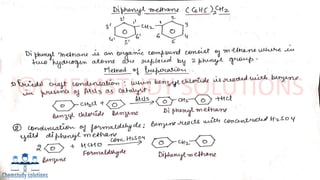 Diphenyl methane (C6H5)2CH2
2' 1' 1 2
3' CH2 3
4' 5' 6' 6 5 4
Diphenyl methane is an organic compound consist of methane where in
two hydrogen atoms are replaced by 2 phenyl group.
Method of Preparation
1) Friedel craft condensation: when benzyl chloride is treated with benzene
in presence of AlCl3 as catalyst
CH2Cl + AlCl3 CH2 + HCl
Benzyl chloride Benzene Diphenyl methane
② Condensation of formaldehyde: Benzene reacts with concentrated H2SO4
yield diphenyl methane
2 + HCHO Conc. H2SO4 CH2
Benzene Formaldehyde Diphenylmethane
Chemstudy solutions